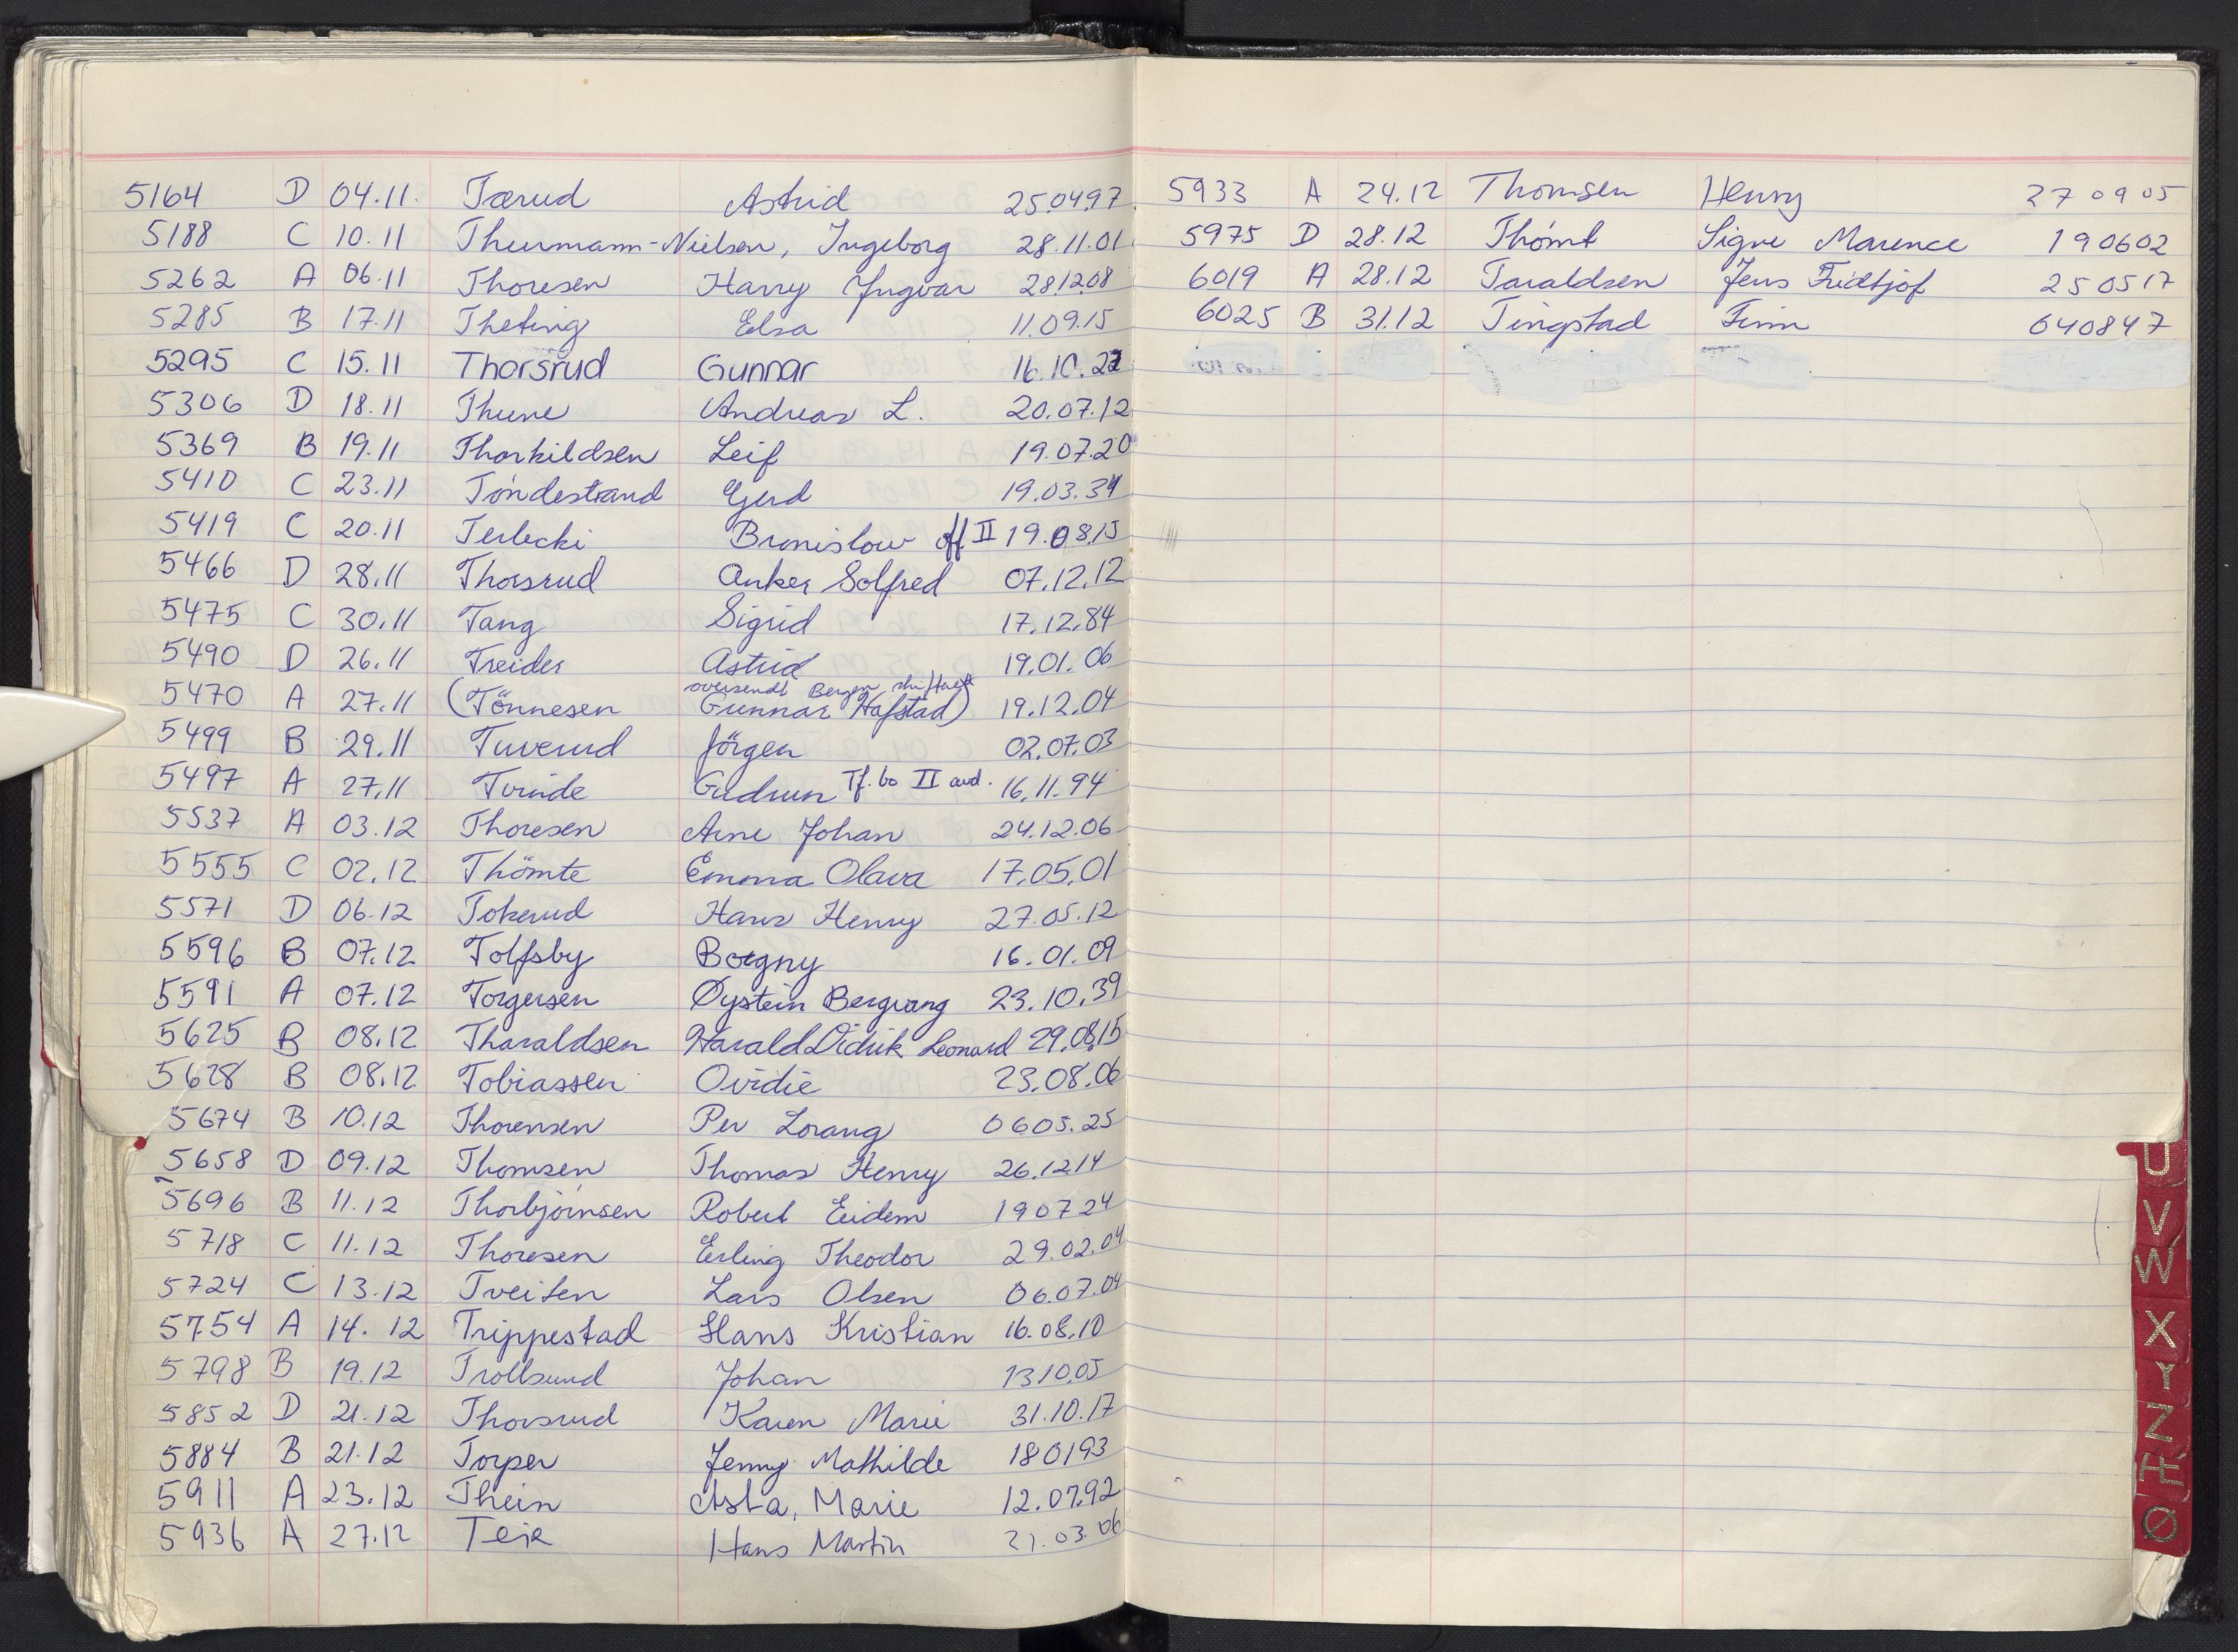 5164 D 04.11. Tærud Astrid 25.04.97
5188 C 10.11 Thurmann-Nielsen, Ingeborg 28.11.01
5262 A 06.11 Thoresen Harry Yngvar 28.12.08
5285 B 17.11 Theting Elsa 11.09.15
5295 C 15.11 Thorsrud Gunnar 16.10.22
5306 D 18.11 Thune Andreas L. 20.07.12
5369 B 19.11 Thorkildsen Leif 19.07.20
5410 C 23.11 Tøndestrand Gerd 19.03.34
5419 C 20.11 Terlecki Bronislow off II 19.08.15
5466 D 28.11 Thorsrud Anker Solfred 07.12.12
5475 C 30.11 Tang Sigrid 17.12.84
5490 D 26.11 Treider Astrid 19.01.06
oversendt Bergen skifterett
5470 A 27.11 (Tönnesen Gunnar Hafstad) 19.12.04
5499 B 29.11 Tuverud Jörgen 02.07.03
5497 A 27.11 Tvinde Gudrun Tf. bo II avd. 16.11.94
5537 A 03.12 Thoresen Arne Johan 24.12.06
5555 C 02.12 Thömte Emma Olava 17.05.01
5571 D 06.12 Tokerud Hans Henry 27.05.12
5596 B 07.12 Tolfsby Borgny 16.01.09
5591 A 07.12 Torgersen Øystein Bergvang 23.10.39
5625 B 08.12 Tharaldsen Harald Didrik Leonard 29.08.15
5628 B 08.12 Tobiassen Ovidie 23.08.06
5674 B 10.12 Thorensen Per Lorang 0605.25
5658 D 09.12 Thomsen Thomas Henry 26.12.14
5696 B 11.12 Thorbjørnsen Robert Eidem 190724
5718 C 11.12 Thoresen Erling Theodor 29.02.04
5724 C 13.12 Tveiten Lars Olsen 06.07.04
5754 A 14.12 Trippestad Hans Kristian 16.08.10
5798 B 19.12 Trollsund Johan 131005
5852 D 21.12 Thorsrud Karen Marie 31.10.17
5884 B 21.12 Torper Jenny Mathilde 180193
5911 A 23.12 Thein Asta, Marie 12.07.92
5936 A 27.12 Teie Hans Martin 21.03.06
5933 A 24.12 Thomsen Henry 270905
5975 D 28.12 Thømt Signe Marence 190602
6019 A 28.12 Taraldsen Jens Fridtjof 250517
6025 B 31.12 Tingstad Finn 040847
U
V
W
X
Y
Z
Æ
Ø